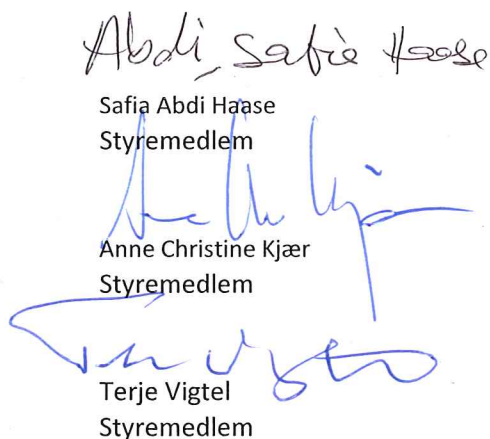 Abdi, Safia Haase
Safia Abdi Haase
Styremedlem
Anne Chr Kjær
Anne Christine Kjær
Styremedlem
Terje Vigtel
Styremedlem